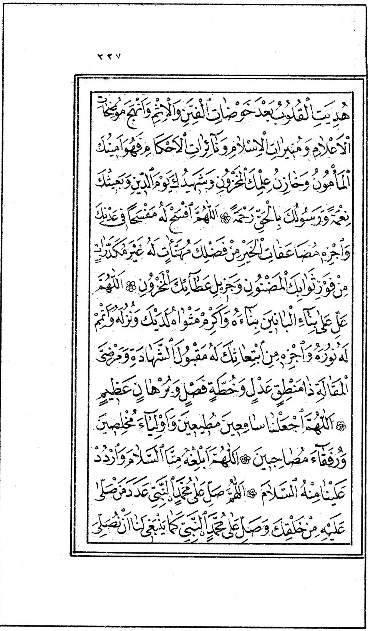 ٢٢٧
هُدِيَتِ الْقُلُوبُ بَعْدَ خَوْضَاتِ الْفِتَنِ وَالْإِثْمِ وَأَنْهَجَ مُوضِحَاتِ
الْأَعْلَامِ وَمُنِيرَاتِ الْإِسْلَامِ وَنَائِرَاتِ الْأَحْكَامِ فَهُوَ أَمِينُكَ
الْمَأْمُونُ وَخَازِنُ عِلْمِكَ الْمَخْزُونِ وَشَهِيدُكَ يَوْمَ الدِّينِ وَبَعِيثُكَ
نِعْمَةً وَرَسُولُكَ بِالْحَقِّ رَحْمَةً ۞ اللَّهُمَّ افْسَحْ لَهُ مُفْسَحًا فِي عَدْنِكَ
وَاجْزِهِ مُضَاعَفَاتِ الْخَيْرِ مِنْ فَضْلِكَ مُهَنَّئَاتٍ لَهُ غَيْرَ مُكَدَّرَاتٍ
مِنْ فَوْزِ ثَوَابِكَ الْمَضْنُونِ وَجَزِيلِ عَطَائِكَ الْمَخْزُونِ ۞ اللَّهُمَّ
عَلِّ عَلَى بِنَاءِ الْبَانِينَ بِنَاءَهُ وَأَكْرِمْ مَثْوَاهُ لَدَيْكَ وَنُزُلَهُ وَأَتْمِمْ
لَهُ نُورَهُ وَاجْزِهِ مِنِ ابْتِعَاثِكَ لَهُ مَقْبُولَ الشَّهَادَةِ وَمَرْضِيَّ
الْمَقَالَةِ ذَا مَنْطِقٍ عَدْلٍ وَخُطَّةٍ فَصْلٍ وَبُرْهَانٍ عَظِيمٍ
۞ اللَّهُمَّ اجْعَلْنَا سَامِعِينَ مُطِيعِينَ وَأَوْلِيَاءَ مُخْلِصِينَ
وَرُفَقَاءَ مُصَاحِبِينَ ۞ اللَّهُمَّ أَبْلِغْهُ مِنَّا السَّلَامَ وَارْدُدْ
عَلَيْنَا مِنْهُ السَّلَامَ ۞ اللَّهُمَّ صَلِّ عَلَى مُحَمَّدٍ النَّبِيِّ عَدَدَ مَنْ صَلَّى
عَلَيْهِ مِنْ خَلْقِكَ وَصَلِّ عَلَى مُحَمَّدٍ النَّبِيِّ كَمَا يَنْبَغِي لَنَا أَنْ نُصَلِّيَ